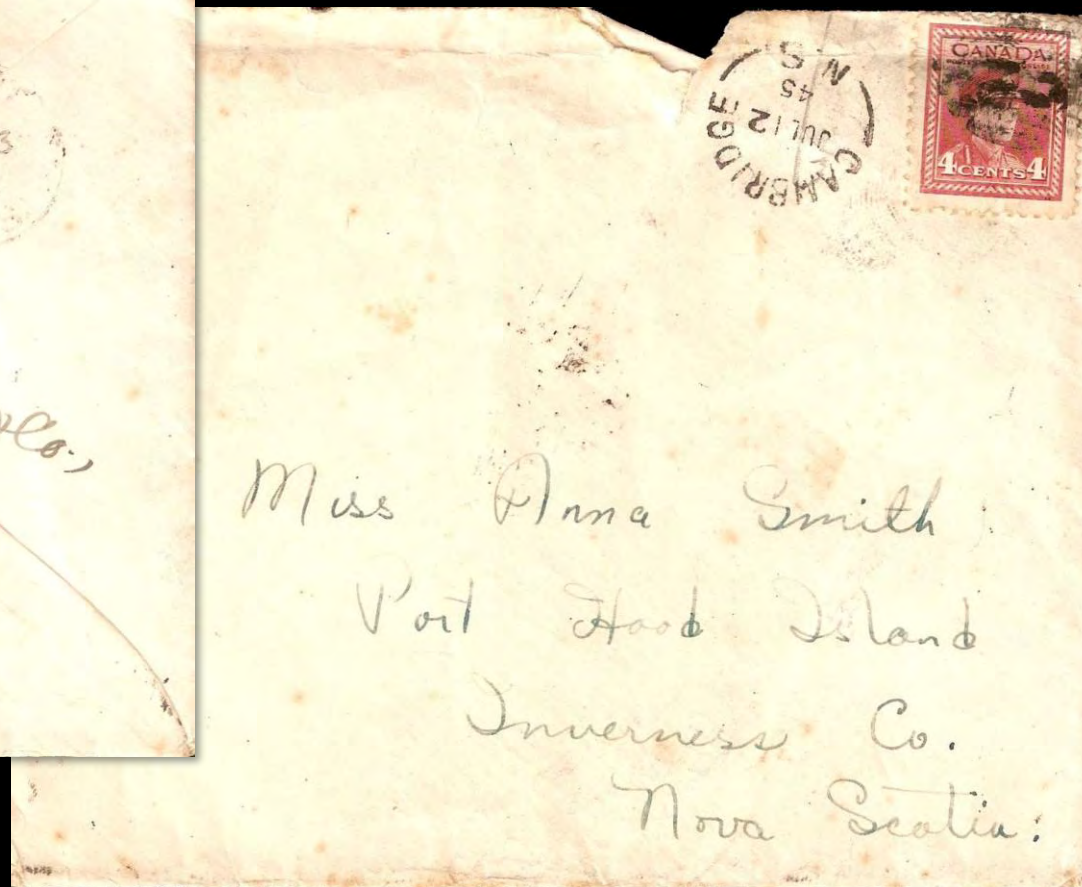 CAMBRIDGE
JUL 12
45
N S
CANADA
4 CENTS 4
3
Co.,
Miss Anna Smith
Port Hood Island
Inverness Co.
Nova Scotia.